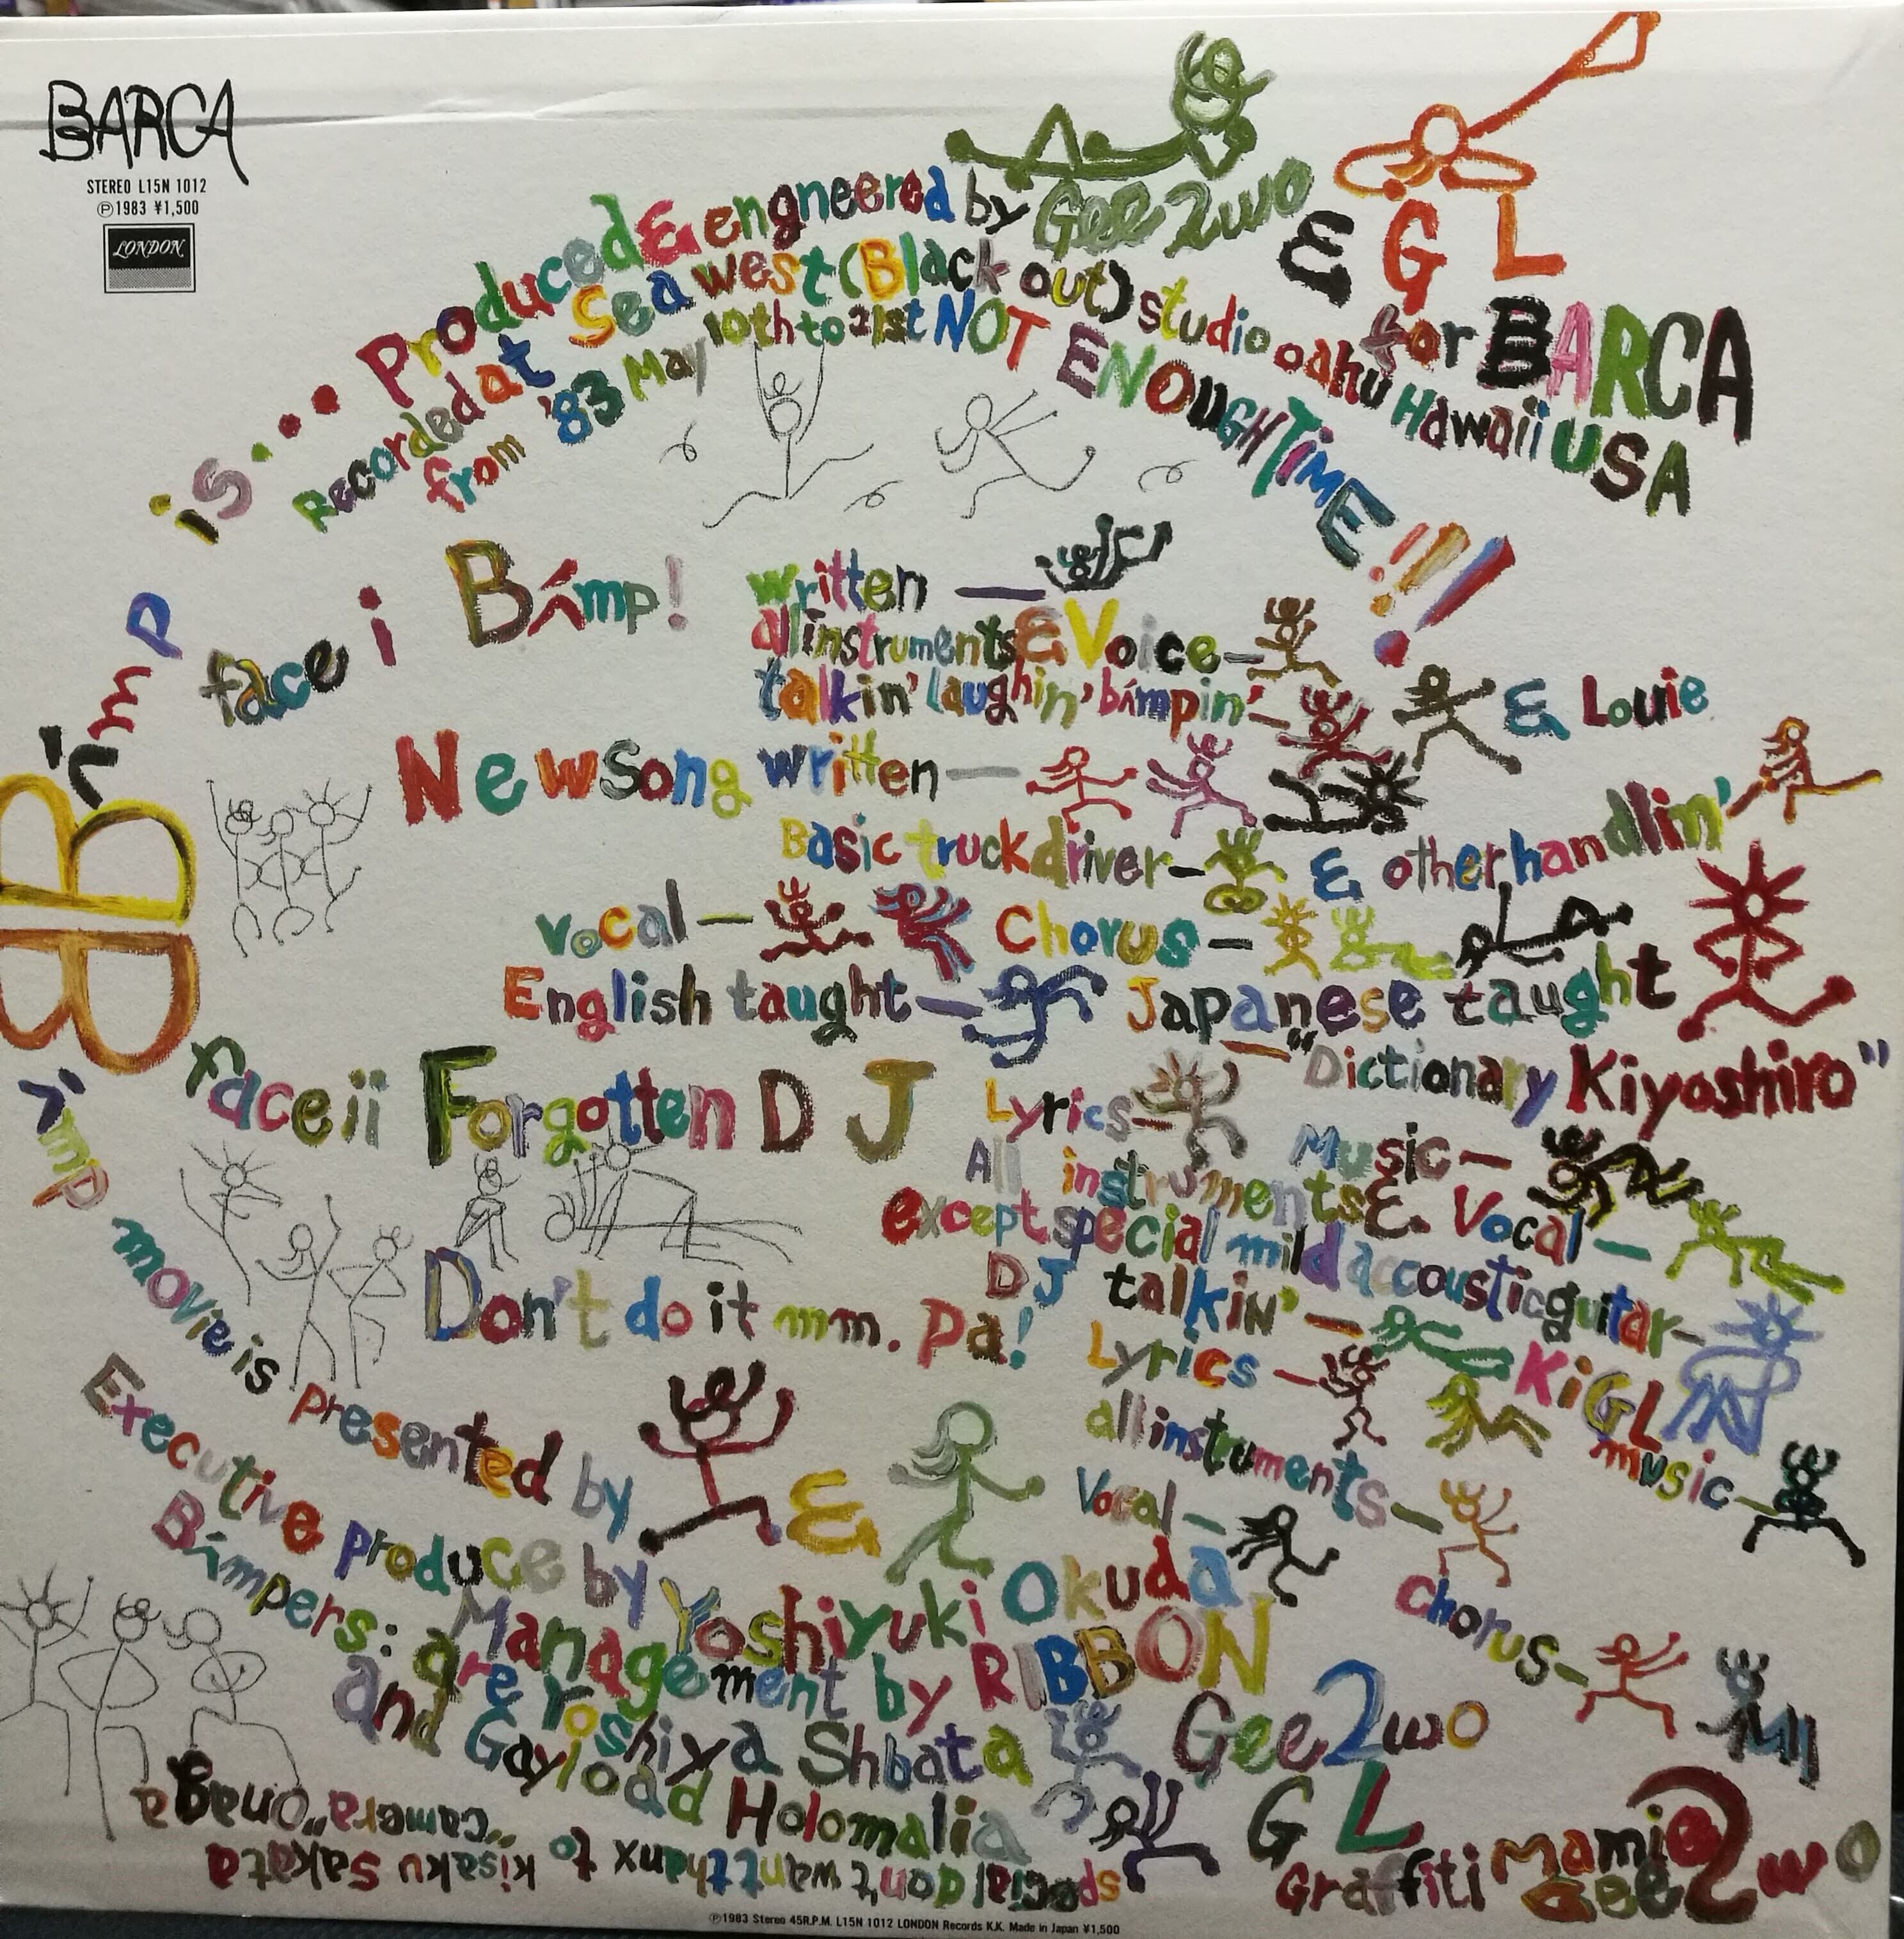 BARCA
STEREO L15N 1012
Ⓟ1983 ¥1,500
LONDON
BÂmp is.... Produced & engneered by Gee2wo & GL for BARCA
Recorded at Sea west (Black out) studio oahu Hawaii USA
from '83 May 10th to 21st NOT ENOUGH TIME!!!
face i BÂmp! written —
all instruments & Voice —
talkin' laughin' bÂmpin' — & Louie
New Song written —
Basic truck driver — & other handlin'
Vocal — Chorus —
English taught — Japanese taught
— "Dictionary Kiyoshiro"
face ii Forgotten DJ Lyrics — Music —
All instruments & Vocal —
except special mild accoustic guitar —
DJ talkin' — KiGL
Don't do it mm. Pa! Lyrics — music —
all instruments —
Vocal —
Chorus —
BÂmp movie is Presented by &
Executive produce by Yoshiyuki Okuda
Management by RIBBON
BÂmpers: are Yoshiya Shbata Gee2wo
and Gayload Holomalia GL
special don't want thanx to kisaku Sakata
"camera" Onaga
Graffiti Mamie Gee2wo
Ⓟ1983 Stereo 45R.P.M. L15N 1012 LONDON Records K.K. Made in Japan ¥1,500